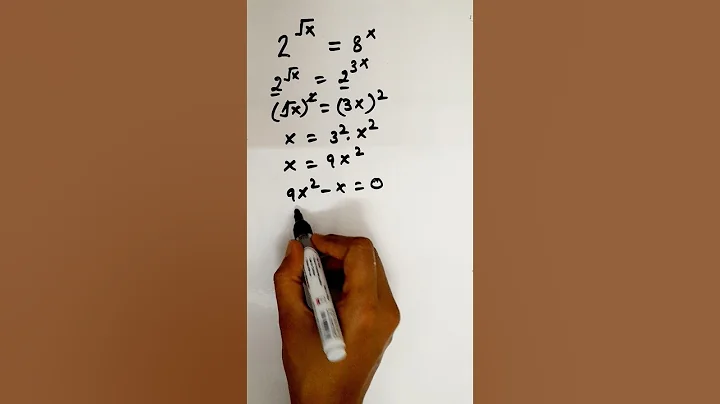 2^√x = 8^x
2^√x = 2^3x
(√x)^2 = (3x)^2
x = 3^2 · x^2
x = 9x^2
9x^2 - x = 0